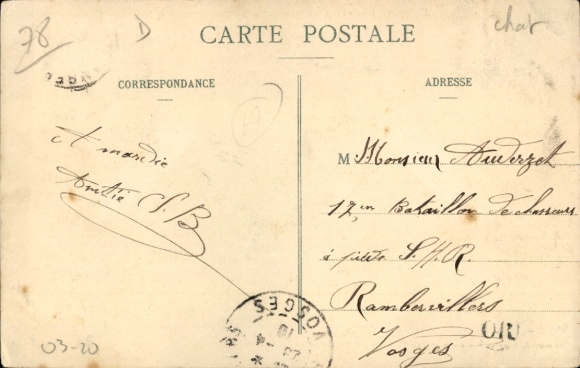 78
D
chat
CARTE POSTALE
CORRESPONDANCE
A mardie
Amitié S. B
03-20
ADRESSE
M Monsieur Auderzet
17em Bataillon de chasseurs
à pieds S.H.R.
Rambervillers
Vosges
ORI
VOSGES